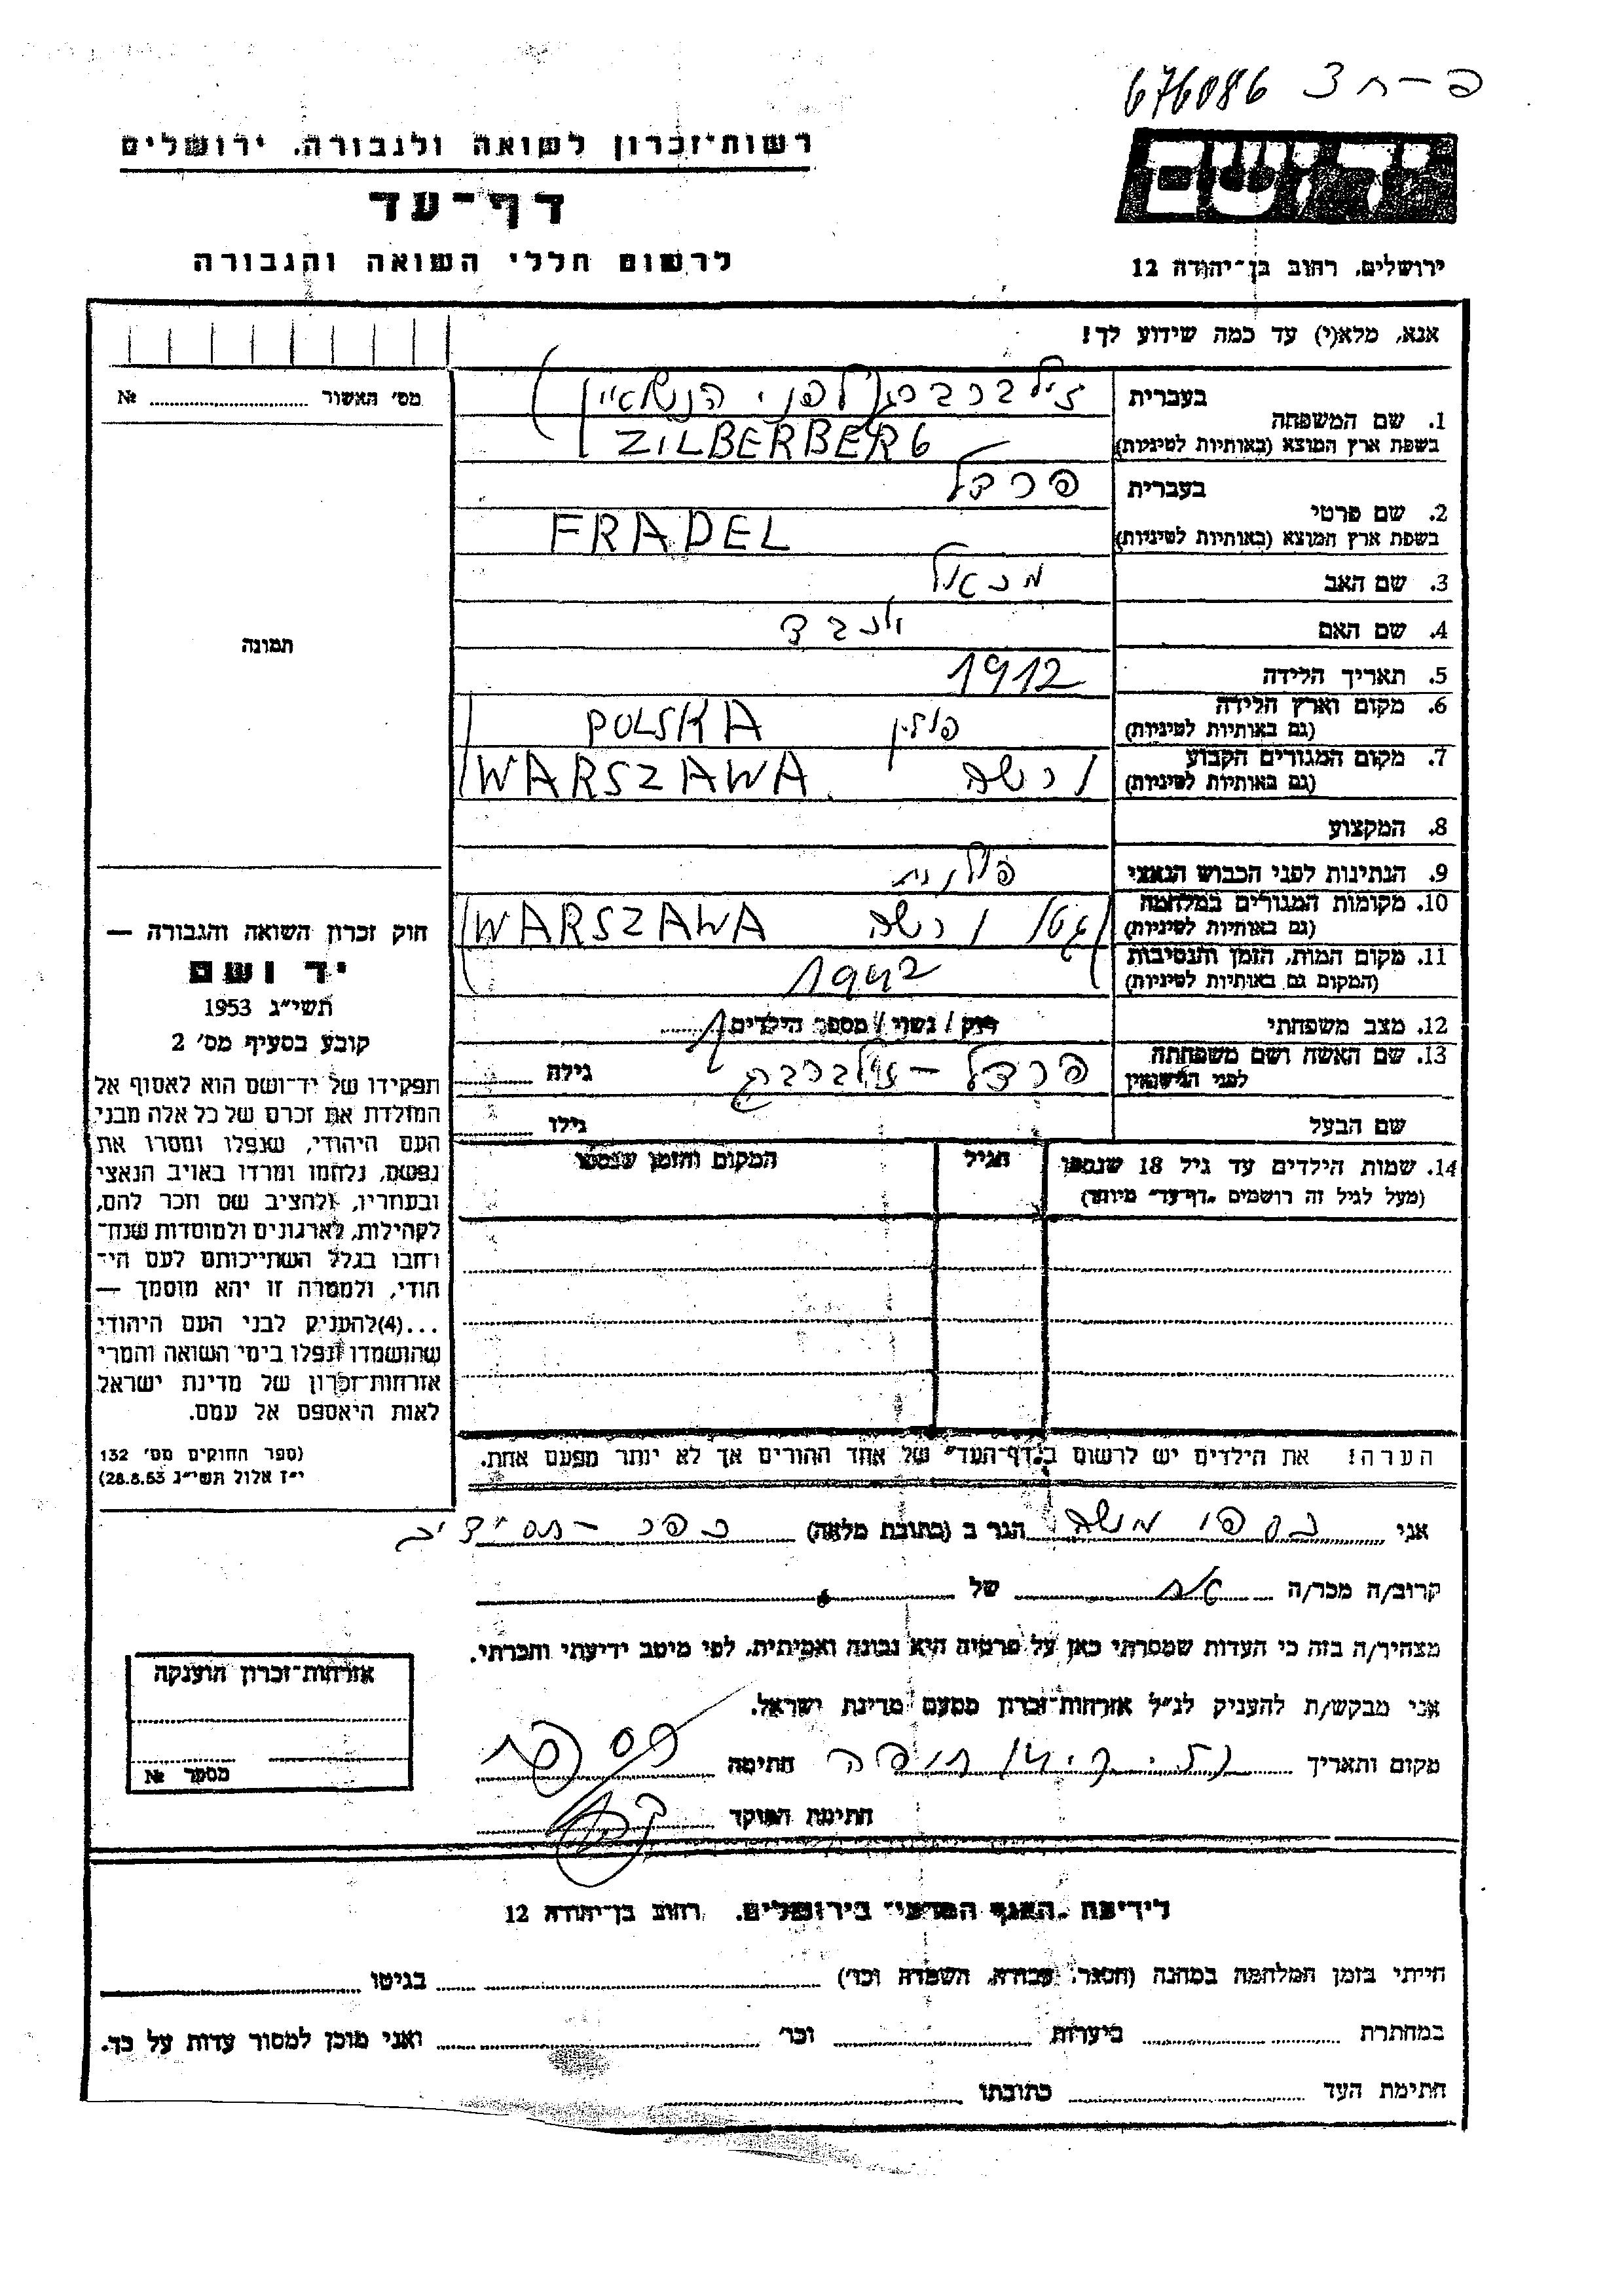 676086 פ-ח 3
רשות־זכרון לשואה ולגבורה, ירושלים
יד ושם
דף־עד
לרשום חללי השואה והגבורה
ירושלים, רחוב בן־יהודה 12
אנא, מלא(י) עד כמה שידוע לך!
מס׳ האשור № 
1. שם המשפחה
בעברית זילברברג (לפני הנשואין)
בשפת ארץ המוצא (באותיות לטיניות) ZILBERBERG
2. שם פרטי
בעברית פרדל
בשפת ארץ המוצא (באותיות לטיניות) FRADEL
3. שם האב
4. שם האם
5. תאריך הלידה 1912
6. מקום וארץ הלידה (גם באותיות לטיניות) פולין POLSKA
7. מקום המגורים הקבוע (גם באותיות לטיניות) ורשה WARSZAWA
8. המקצוע
9. הנתינות לפני הכבוש הנאצי פולנית
10. מקומות המגורים במלחמה (גם באותיות לטיניות) גטו ורשה WARSZAWA
11. מקום המות, הזמן והנסיבות (המקום גם באותיות לטיניות) 1942
12. מצב משפחתי רוק / נשוי / מספר הילדים 1
13. שם האשה ושם משפחתה לפני הנישואין פרדל - זילברברג גילה
שם הבעל גילו
14. שמות הילדים עד גיל 18 שנספו
(מעל לגיל זה רושמים „דף־עד״ מיוחד)
הגיל
המקום והזמן שנספו
תמונה
חוק זכרון השואה והגבורה —
יד ושם
תשי״ג 1953
קובע בסעיף מס׳ 2
תפקידו של יד־ושם הוא לאסוף אל
המולדת את זכרם של כל אלה מבני
העם היהודי, שנפלו ומסרו את
נפשם, נלחמו ומרדו באויב הנאצי
ובעוזריו, ולהציב שם וזכר להם,
לקהילות, לארגונים ולמוסדות שנח־
רחבו בגלל השתייכותם לעם הי־
הודי, ולמטרה זו יהא מוסמך —
...(4)להעניק לבני העם היהודי
שהושמדו ונפלו בימי השואה והמרי
אזרחות־זכרון של מדינת ישראל
לאות היאספם אל עמם.
(ספר החוקים מס׳ 132
י״ז אלול תשי״ג 28.8.53)
הערה! את הילדים יש לרשום ב„דף־העד״ של אחד ההורים אך לא יותר מפעם אחת.
אני כספי משה הגר ב (כתובת מלאה) כפר -
קרוב/ה מכר/ה של
מצהיר/ה בזה כי העדות שמסרתי כאן על פרטיה היא נכונה ואמיתית, לפי מיטב ידיעתי והכרתי.
אני מבקש/ת להעניק לנ״ל אזרחות־זכרון מטעם מדינת ישראל.
מקום ותאריך חתימה
חתימת הפוקד
אזרחות־זכרון הוענקה
מספר №
לידיעת „האגף המדעי״ בירושלים, רחוב בן־יהודה 12
הייתי בזמן המלחמה במחנה (הסגר, עבודה, השמדה וכו׳) בגיטו
במחתרת ביערות וכו׳ ואני מוכן למסור עדות על כך.
חתימת העד כתובתו